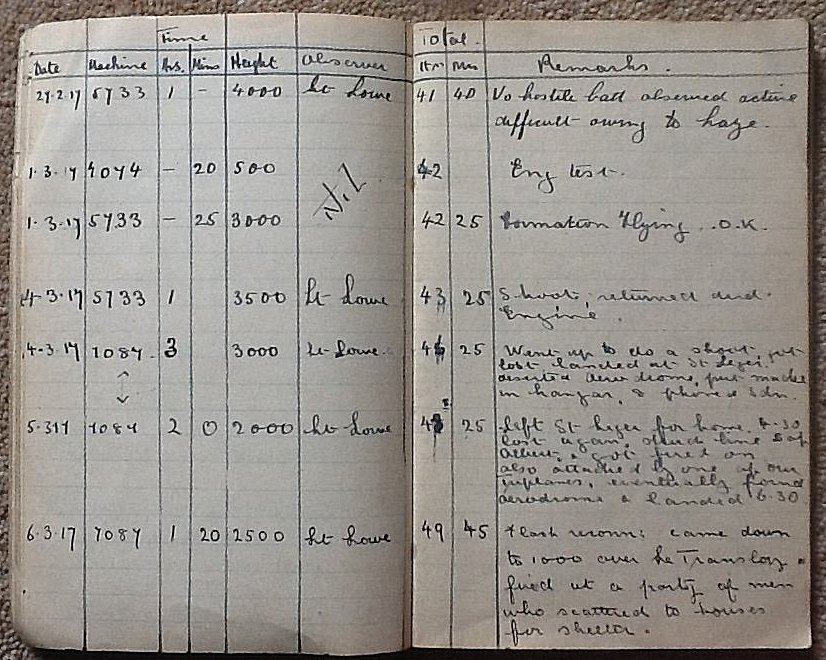 Time
Date Machine Hrs. Mins Height Observer
27.2.17 5733 1 - 4000 Lt Lowe
1.3.17 4074 - 20 500
1.3.17 5733 - 25 3000
Nil
4-3.17 5733 1 3500 Lt Lowe
4-3.17 7087 3 3000 Lt Lowe.
5.317 7087 2 0 2000 Lt Lowe
6.3.17 7087 1 20 2500 Lt Lowe
Total.
Hrs Mins Remarks.
41 40 No hostile batt observed active
difficult owing to haze.
42 Eng test.
42 25 Formation Flying. . O.K.
43 25 Shoot, returned dud.
Engine.
25 Went up to do a shoot, got
lost landed at St Leger.
deserted aerodrome, put machine
in hangar, & phoned Sdn.
25 Left St Leger for home. 4.30
lost again, struck line S of
Albert, & got fired on
also attacked by one of our
triplanes, eventually found
aerodrome & landed 6.30
49 45 Flash reconn: came down
to 1000 over Le Transloy &
fired at a party of men
who scattered to houses
for shelter.